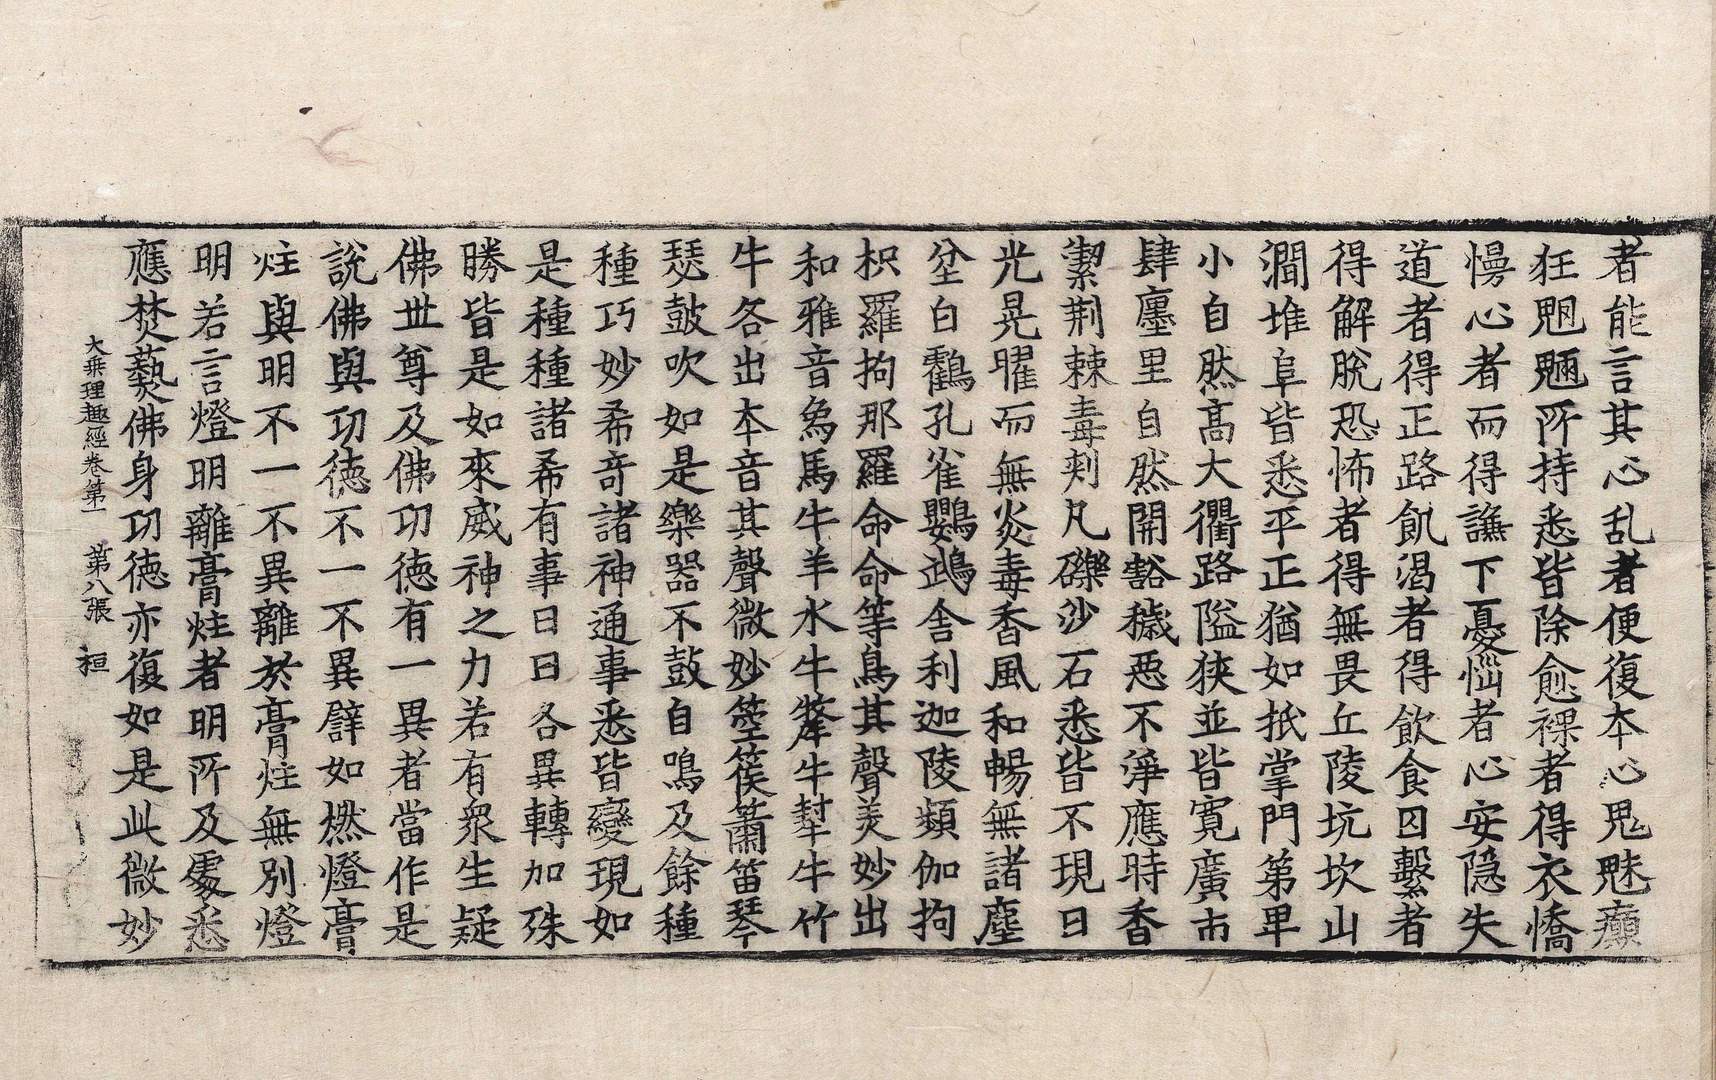 者能言其心乱者便復本心鬼魅癲
狂魍魎所持悉皆除愈裸者得衣憍
慢心者而得謙下憂惱者心安隠失
道者得正路飢渴者得飲食囚繫者
得解脫恐怖者得無畏丘陵坑坎山
澗堆阜皆悉平正猶如抵掌門第卑
小自然高大衢路隘狹並皆寬廣市
肆廛里自然開豁穢惡不淨應時香
潔荆棘毒刺凡礫沙石悉皆不現日
光晃曜而無炎毒香風和暢無諸塵
坌白鸛孔雀鸚鵡舍利迦陵頻伽拘
枳羅拘那羅命命等鳥其聲美妙出
和雅音象馬牛羊水牛犛牛犎牛竹
牛各出本音其聲微妙箜篌簫笛琴
瑟鼓吹如是樂器不鼓自鳴及餘種
種巧妙希奇諸神通事悉皆變現如
是種種諸希有事日日各異轉加殊
勝皆是如來威神之力若有衆生疑
佛世尊及佛功徳有一異者當作是
說佛與功徳不一不異譬如燃燈膏
炷與明不一不異離於膏炷無別燈
明若言燈明離膏炷者明所及處悉
應焚爇佛身功徳亦復如是此微妙
大乗理趣經卷第一 第八張 桓